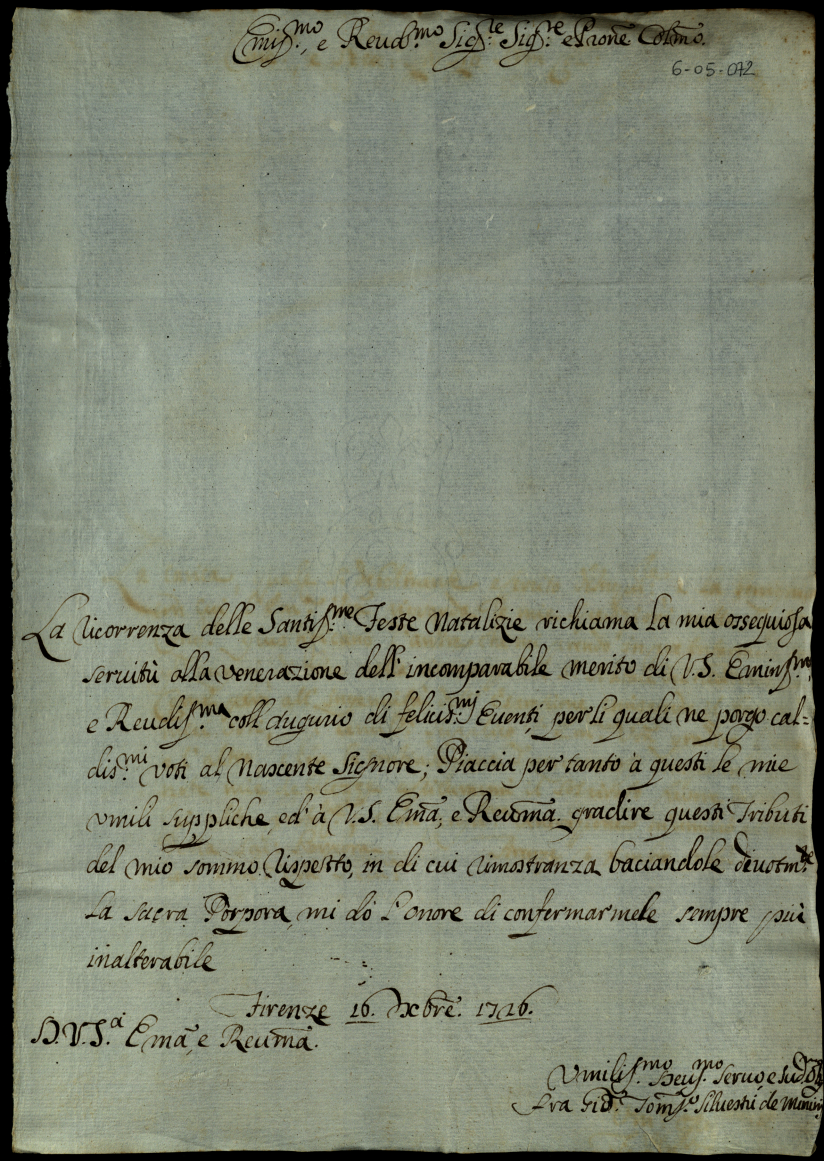 Emiss.mo, e Reud.mo Sig.re Sig.re e Prone Colmo.
6-05-072
La ricorrenza delle Santiss.me Feste Natalizie richiama la mia ossequiosa
seruitù alla venerazione dell'incomparabile merito di V.S. Eminss.ma
e Reudiss.ma coll'augurio di felicis.mi Euenti per li quali ne porgo cal=
dis.mi voti al Nascente Signore; Piaccia per tanto à questi le mie
vmili suppliche, ed' à V.S. Ema, e Reuma. gradire questi Tributi
del mio sommo rispetto, in di cui rimostranza baciandole diuotm.te
la sacra Porpora, mi dò l'onore di confermarmele sempre più
inalterabile
Firenze 16. Xbre. 1726.
D. V. S.a Ema, e Reuma.
Vmiliss.mo Deu.mo Seruo, e
Fra Tom.o Siluestri de